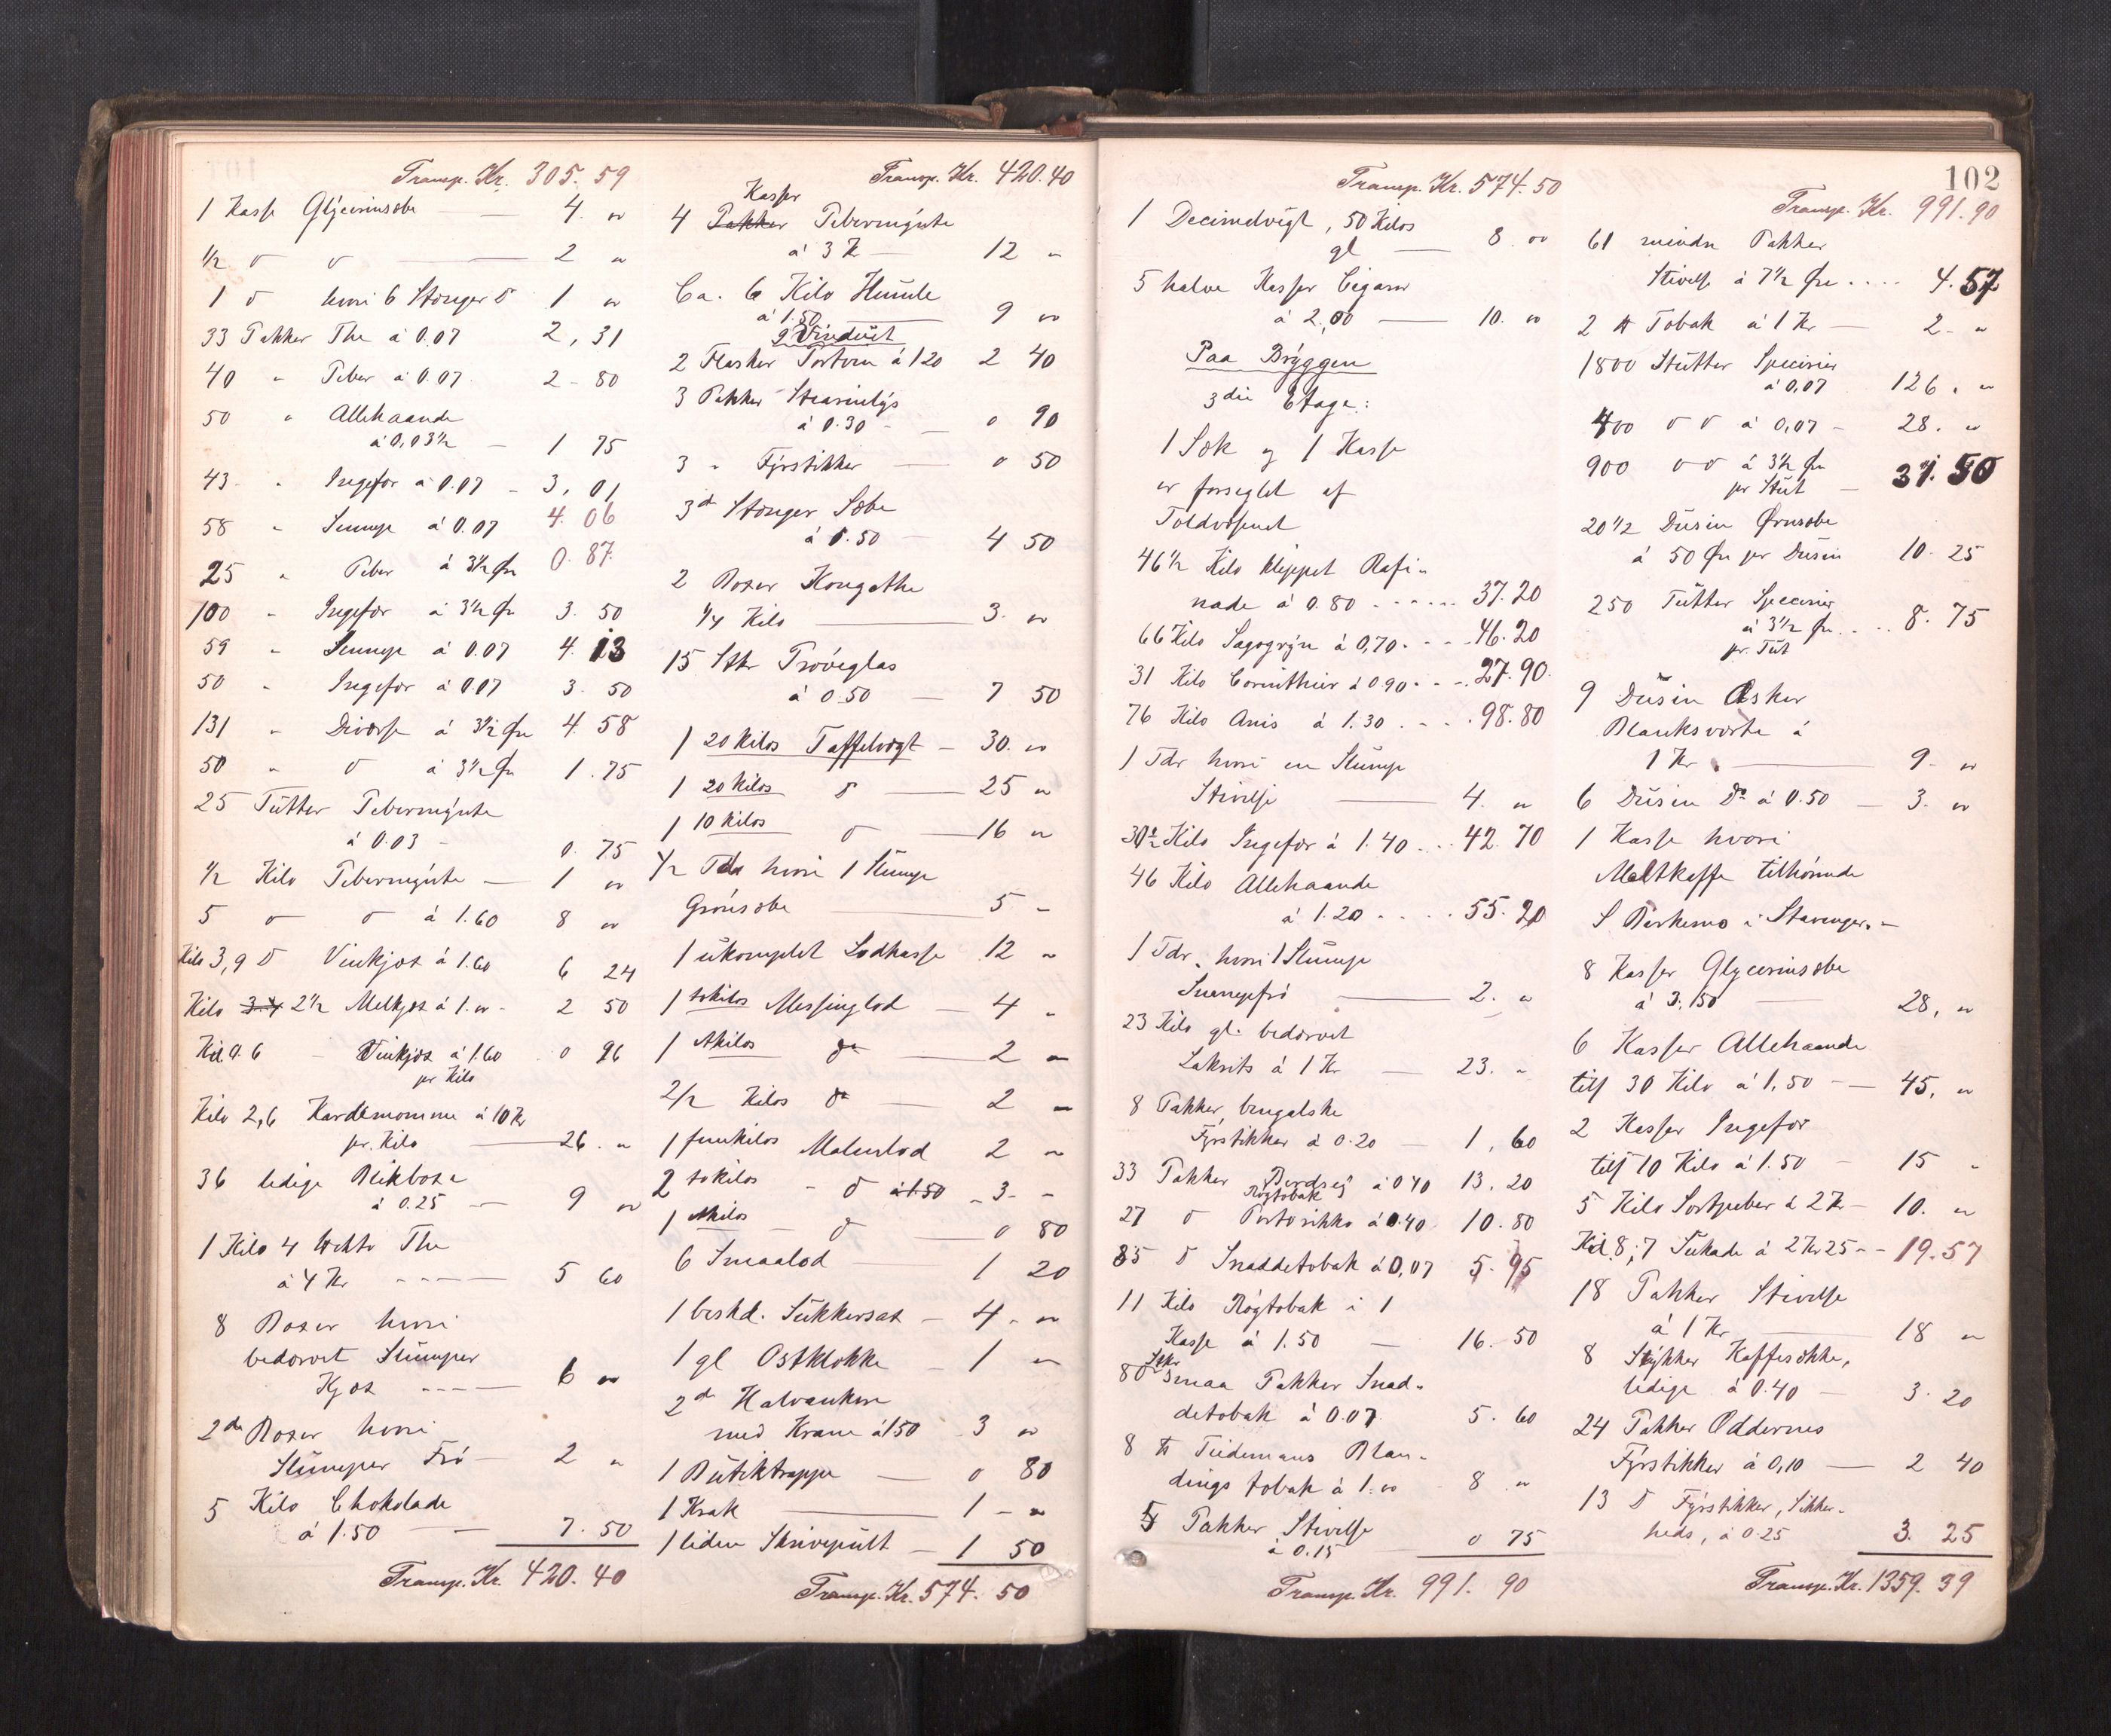 Transp. Kr. 305. 59
1 Kasse Glycerinsæbe — 4. "
½ d d — 2 "
1 d hvori 6 Stænger d 1 "
33 Pakker The à 0.07 2,31
40 " Peber à 0.07 2-80
50 " Allehaande
à 0,03½ - 1 75
43 " Ingefær à 0.07 - 3,01
58 " Sennep à 0.07 4.06
25 " Peber à 3½ Øre 0.87.
100 " Ingefær à 3½ Øre 3.50
59 " Sennep à 0.07 4.13
50 " Ingefær à 0.07 3.50
131 " Diverse à 3½ Øre 4.58
50 " d à 3½ Øre 1.75
25 Tutter Pebermynte
à 0.03 - 0.75
½ Kilo Pebermynte — 1 "
5 d d à 1.60 8 "
Kilo 3,9 d Vinkjæx à 1.60 6 24
Kilo 3.4 2½ Melkjæx à 1." - 2 50
Kil 0.6 - Vinkjæx à 1.60 0 96
pr Kilo
Kilo 2,6 Kardemomme à 10 Kr
pr. Kilo — 26. "
36 ledige Blikboxe
à 0.25 — 9 "
1 Kilo 4 Hekto The
à 4 Kr ---- 5 60
8 Boxer hvori
bedærvet Slumper
Kjæx ---- 6 "
2de Boxer hvori
Slumper Frö — 2 "
5 Kilo Chokolade
à 1.50 — 7.50
Transp. Kr. 420.40
Transp. Kr. 420.40
Kasser
4 Pakker Pebermynte
à 3 Kr — 12 "
Ca. 6 Kilo Humle
à 1.50 — 9 "
I Vinduet
2 Flasker Portvin à 120 2 40
3 Pakker Stearinlys
à 0.30 - 0 90
3 " Fyrstikker — 0 50
3d Stænger Sæbe
à 1.50 — 4 50
2 Boxer Kongethe
¼ Kilo — 3. "
15 Stkr Pröveglas
à 0.50 — 7 50
1 20 Kilos Taffelvægt - 30. "
1 20 Kilos d — 25 "
1 10 Kilos d — 16 "
½ Tdr hvori 1 Slump
Grönsæbe — 5 -
1 ukomplet Lodkasse 12 "
1 tokilos Messinglod — 4 "
1 1kilos do — 2 "
2/2 Kilos do — 2 "
1 femkilos Malmlod 2 "
2 tokilos - d à 1.50 - 3- -
1 1kilos - d — 0 80
6 Smaalod — 1 20
1 beskd. Sukkersax — 4. "
1 gl Ostklokke — 1 "
2de Halvankere
med Krane à 150 3 "
1 Butiktrappe — 0 80
1 Krak — 1 - "
1 liden Skrivepult — 1 50
Transp. Kr. 574.50
102
Transp. Kr. 574.50
1 Decimalvægt, 50 Kilos
gl — 8. "
5 halve Kasser Cigarer
à 2,00 — 10. "
Paa Bryggen
3die Etage:
1 Sæk og 1 Kasse
er forseglet af
Toldvæsenet
46½ Kilo klippet Rafi-
nade à 0.80 ------ 37.20
66 Kilo Sagogryn à 0,70. - - - 46.20
31 Kilo Corinthier à 0.90. - - . 27.90.
76 Kilo Anis à 1.30 . - - . 98.80
1 Tdr hvori en Slump
Stivelse — 4. "
30½ Kilo Ingefær à 1.40 ... 42.70
46 Kilo Allehaande
à 1.20 . . . . 55.20
1 Tdr. hvori 1 Slump
Sennepsfrö — 2. "
23 Kilo gl. bedærvet
Lakrits à 1 Kr — 23. "
8 Pakker bengalske
Fyrstikker à 0.20 — 1,60
33 Pakker Røgtobak à 0 40 13.20
27 d Portorikko à 0.40 10.80
85 d Snaddetobak à 0,07 5.95
11 Kilo Røgtobak i 1
Kasse à 1.50 — 16.50
80 Stkr smaa Pakker Snad-
detobak à 0.07 5.60
8 ℔ Tiedemans Blan-
dings tobak à 1." 8 "
5 Pakker Stivelse
à 0.15 0 75
Transp. Kr. 991. 90
Transp. Kr. 991.90
61 mindre Pakker
Stivelse à 7½ Øre .... 4.57
2 ℔ Tobak à 1 Kr — 2- "
1800 Stutter Specerier
à 0,07 126. "
400 d d à 0,07 - 28. "
900 d d à 3½ Øre
pr Stut — 31.50
20½ Dusin Ørnsæbe
à 50 Øre pr Dusin 10-25
250 Tutter Specerier
à 3½ Øre . . . . 8.75
pr. Tut
9 Dusin Æsker
Blanksværte à
1 Kr. — 9- "
6 Dusin Do à 0.50 — 3. "
1 Kasse hvori
Maltkaffe tilhörende
S Berkemo i Stavanger. -
8 Kasser Glycerinsæbe
à 3.50 — 28, "
6 Kasser Allehaande
tils 30 Kilo à 1,50 - — 45, "
2 Kasser Ingefær
tils 10 Kilo à 1.50 - 15 "
5 Kilo Sortpeber à 2 Kr - 10. "
Kil 8,7 Sukade à 2 Kr 25 - - 19.57
18 Pakker Stivelse
à 1 Kr — 18 "
8 Stykker Kaffesække,
ledige à 0.40 — 3.20
24 Pakker Oddernes
Fyrstikker à 0,10 — 2 40
13 d Fyrstikker, Sikker-
heds, à 0.25 3.25
Transp. Kr. 1359.39